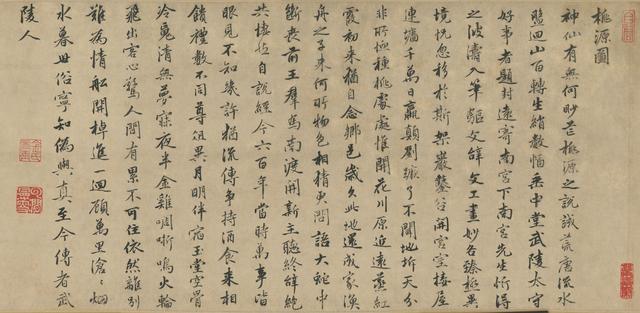 桃源圖
神仙有無何眇芒桃源之說誠荒唐流水
盤迴山百轉生綃數幅垂中堂武陵太守
好事者題封遠寄南宮下南宮先生忻得
之波濤入筆驅文辭文工畫妙各臻極異
境恍忽移於斯架巖鑿谷開宮室接屋
連墻千萬日嬴顛劉蹶了不聞地坼天分
非所恤種桃處處惟開花川原近遠蒸紅
霞初來猶自念鄉邑歲久此地還成家漁
舟之子來何所物色相猜更問語大蛇中
斷喪前王羣馬南渡開新主聽終辭絶
共悽然自說經今六百年當時萬事皆
眼見不知幾許猶流傳爭持酒食來相
饋禮數不同尊俎異月明伴宿玉堂空骨
冷魂清無夢寐夜半金雞啁哳鳴火輪
飛出客心驚人間有累不可住依然離別
難為情船開棹進一迴顧萬里滄滄烟
水暮世俗寧知偽與真至今傳者武
陵人